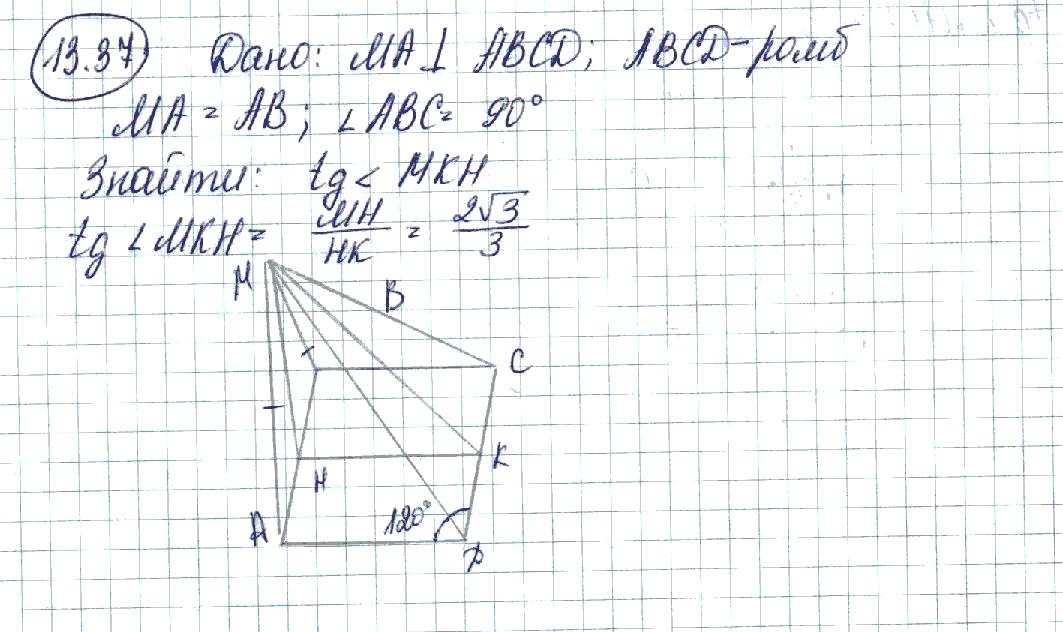 13.37 Дано: MA ⊥ ABCD; ABCD-ромб
MA = AB; ∠ABC = 90°
Знайти: tg < MKH
tg ∠MKH = MH/HK = 2√3/3
M
B
C
K
H
120°
A
D